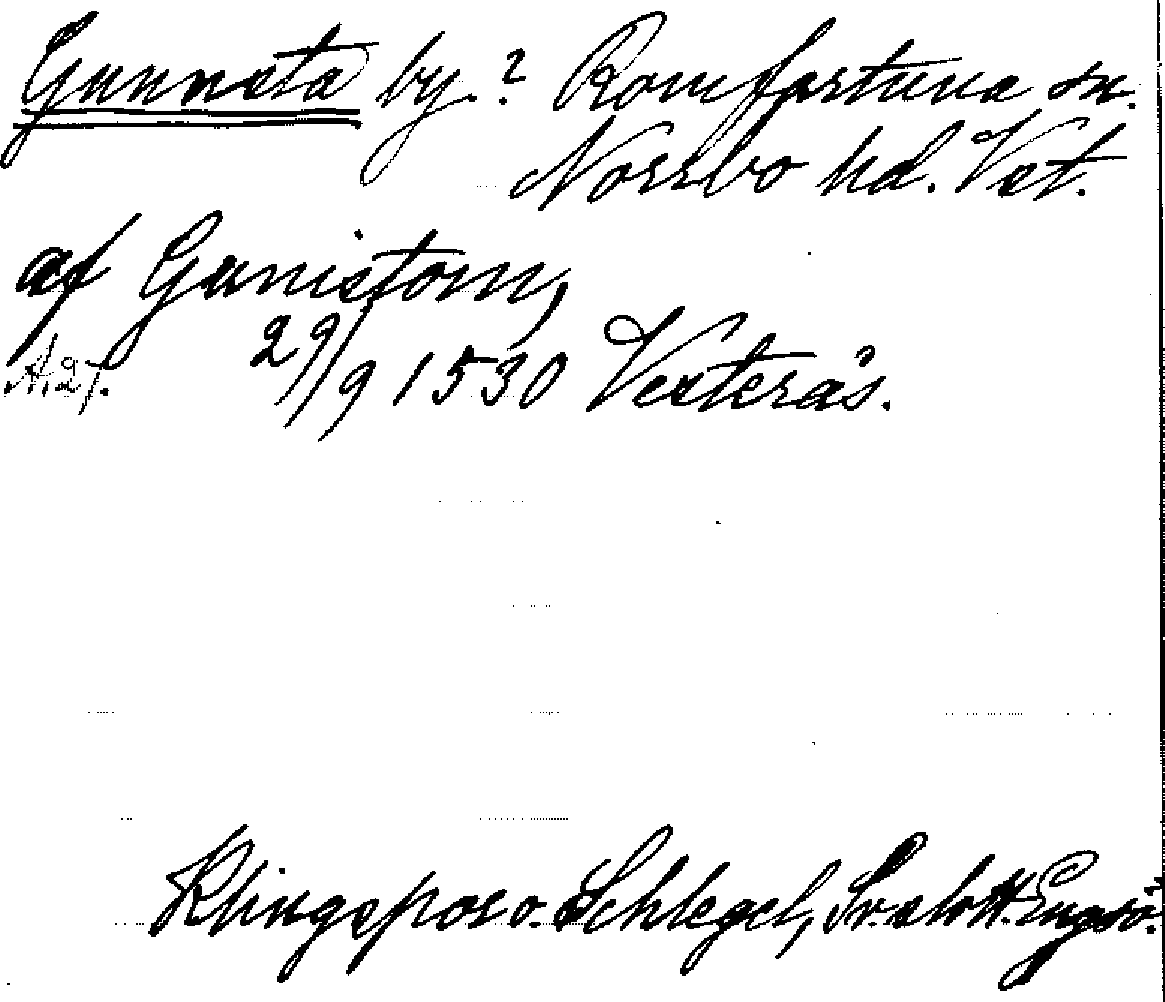 Gunnsta by.? Romfartuna sn.
Norrbo hd. Vst.
af Gunistom,
A.27. 29/9 1530 Vesterås.
Klingspor o. Schlegel, Sv. slott. Engsö.